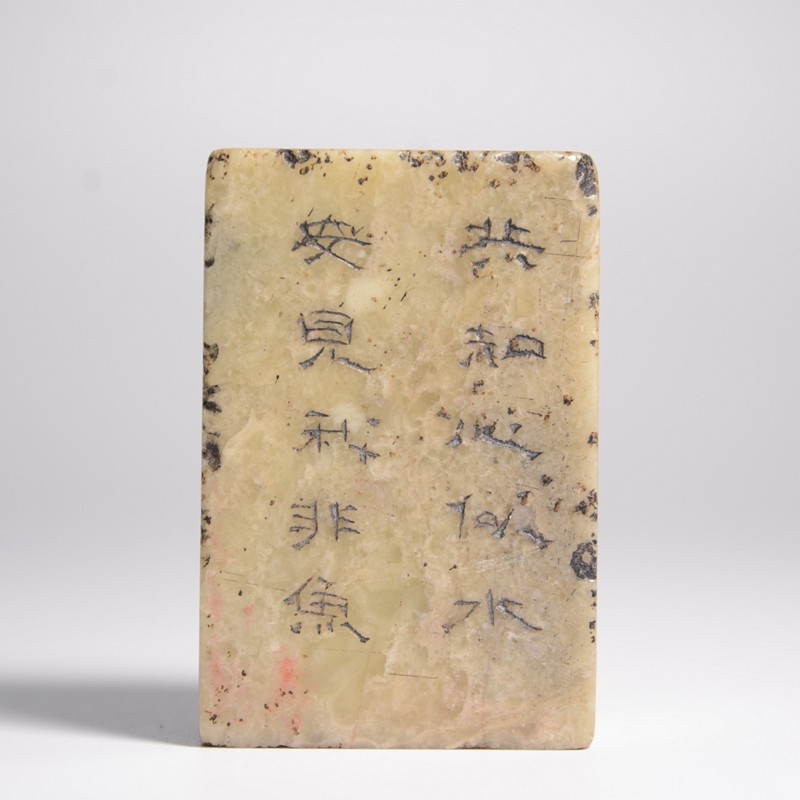 共知心似水
安見我非魚